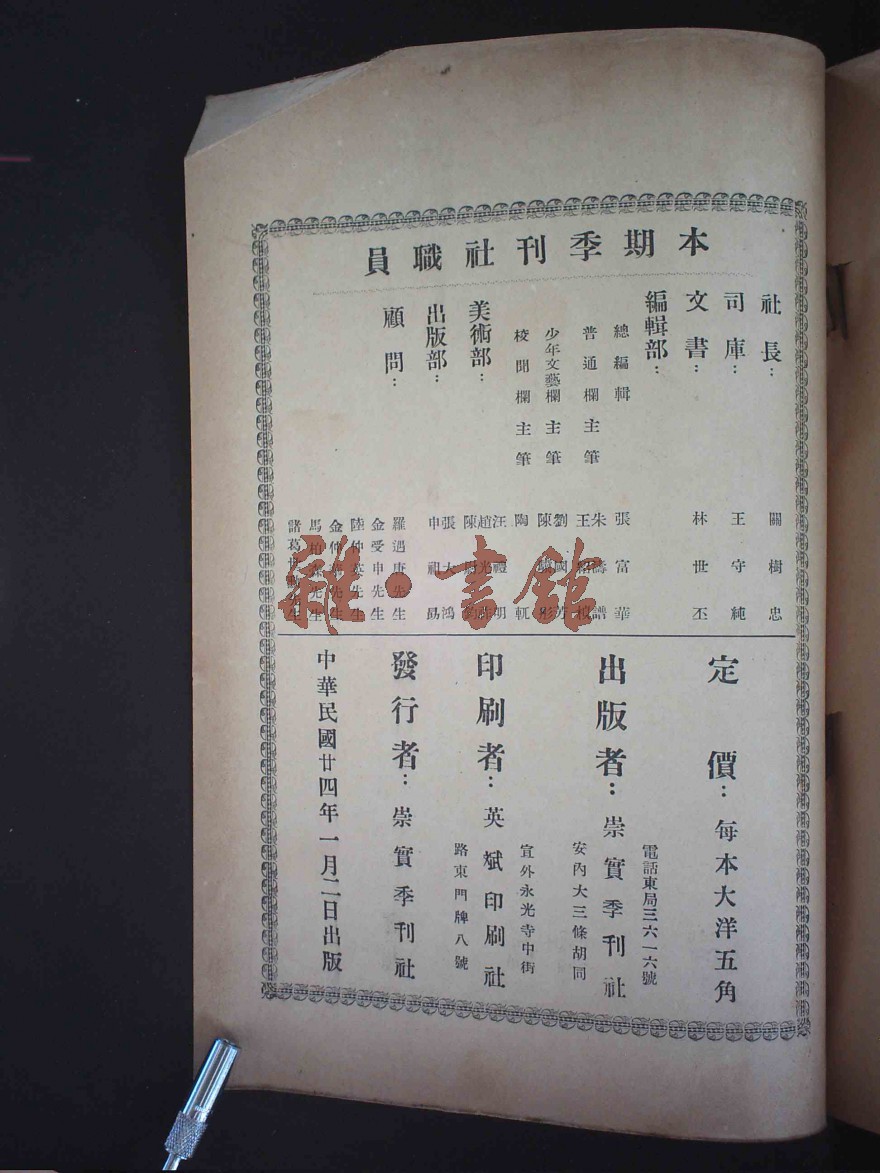 本期季刊社職員
社長：
關樹忠
司庫：
王守純
文書：
林世丕
編輯部：
總編輯
張富華
普通欄主筆
朱濤譜
王紹楨
少年文藝欄主筆
劉國芳
陳 彤
校聞欄主筆
陶 軏
美術部：
汪禮明
趙光
陳尉
出版部：
張大鴻
申祖勗
顧問：
羅遇唐先生
金受申先生
陸仲英先生
金仲 先生
馬柏森先生
諸葛 先生
定價：每本大洋五角
電話東局三六一六號
出版者：崇實季刊社
安內大三條胡同
宣外永光寺中街
印刷者：英斌印刷社
路東門牌八號
發行者：崇實季刊社
中華民國廿四年一月二日出版
雜·書館